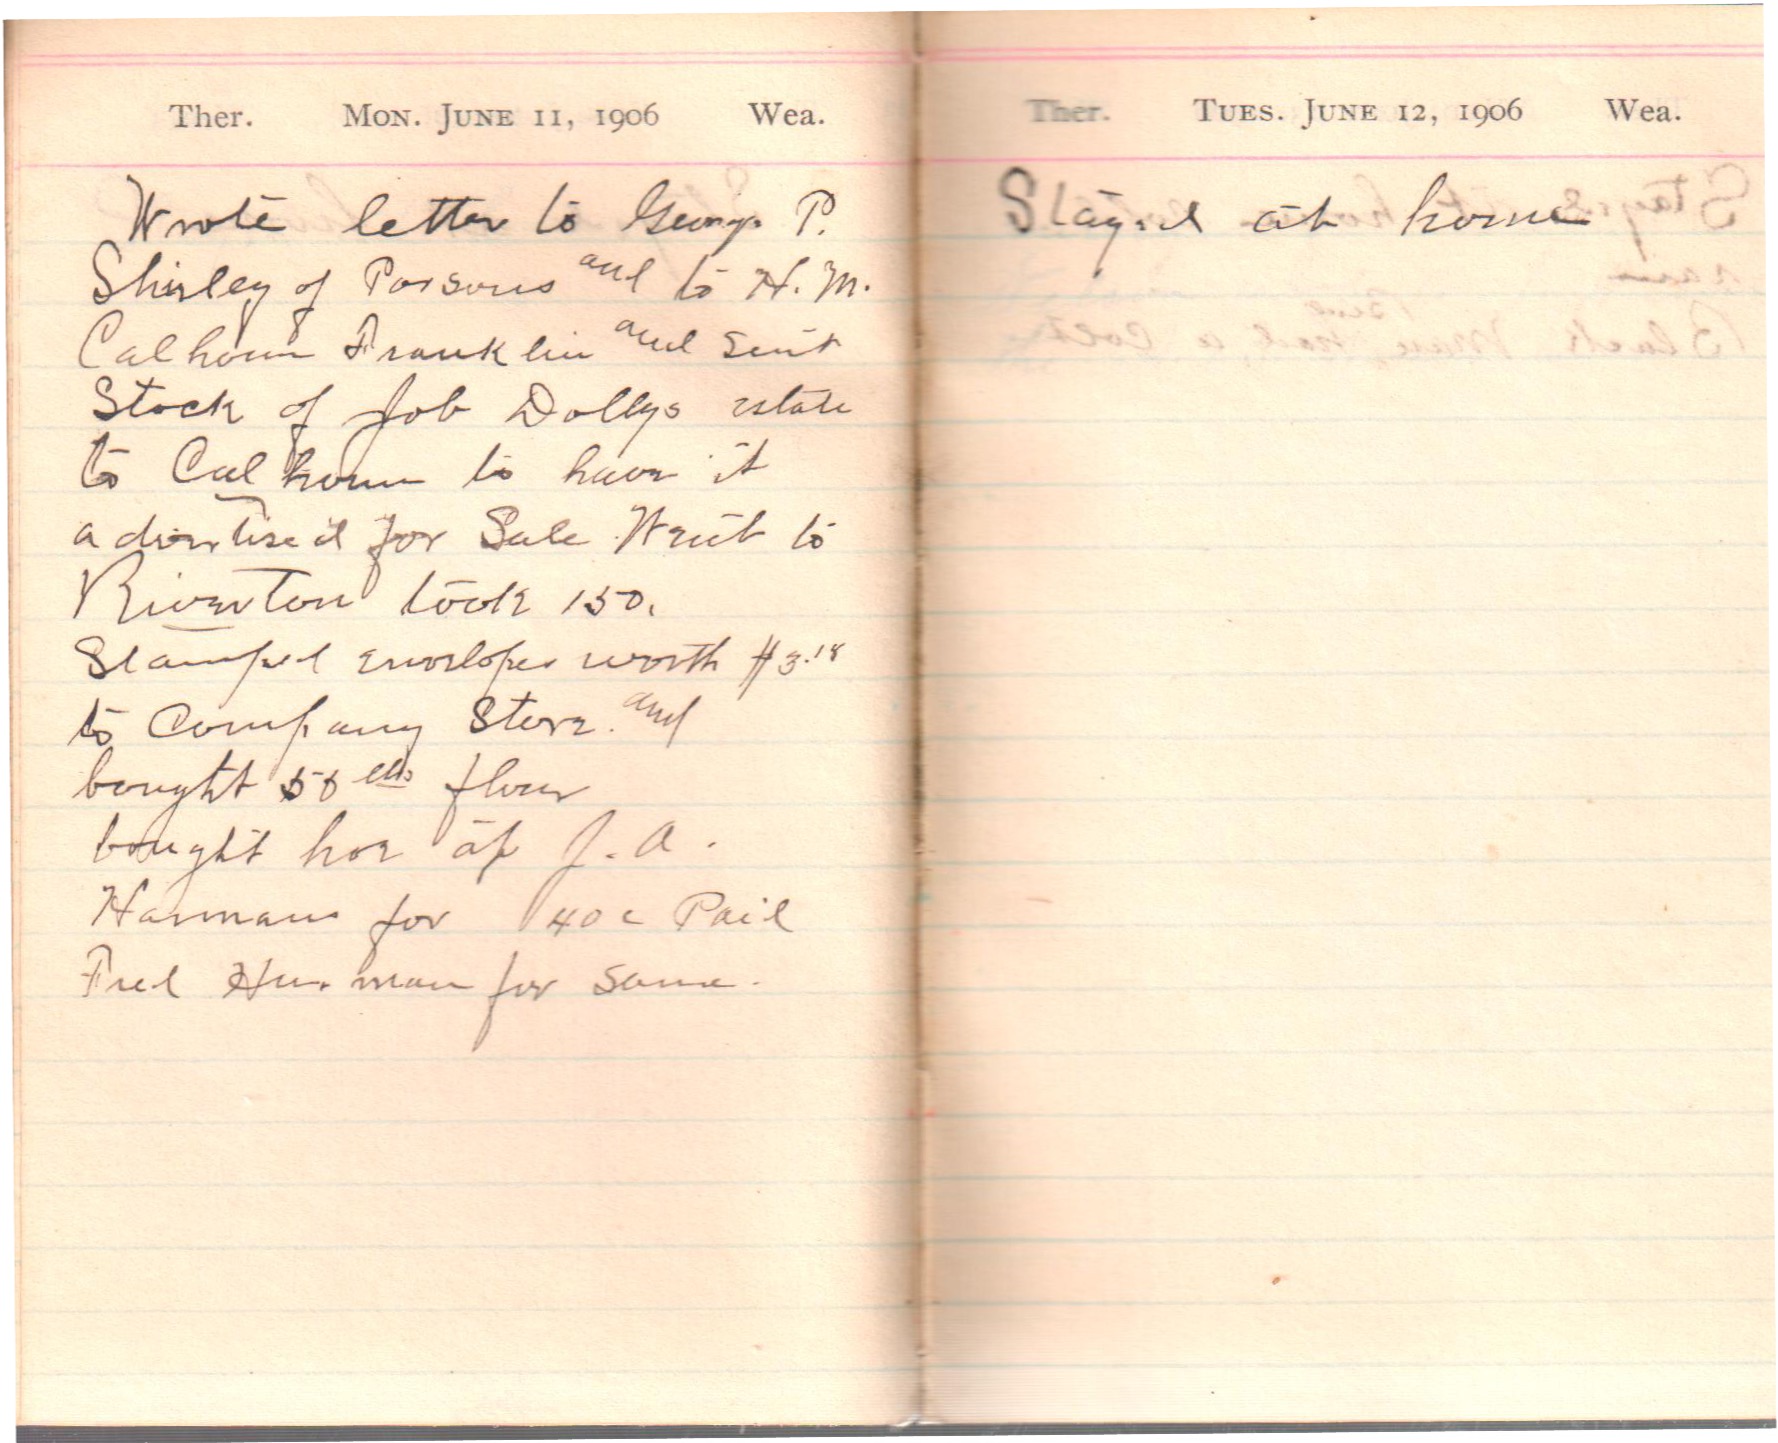 Ther. Mon. June 11, 1906 Wea.
Wrote letter to George P.
Shirley of Parsons and to H. M.
Calhoun Franklin and sent
Stock of Job Dollys estate
to Calhoun to have it
advertised for Sale Went to
Riverton took 150.
Stamped envelopes worth $3.18
to Company Store. and
bought 50 lbs flour
bought hoe of J. A.
Harmans for 40c Paid
Fred Harman for same.
Ther. Tues. June 12, 1906 Wea.
Stayed at home